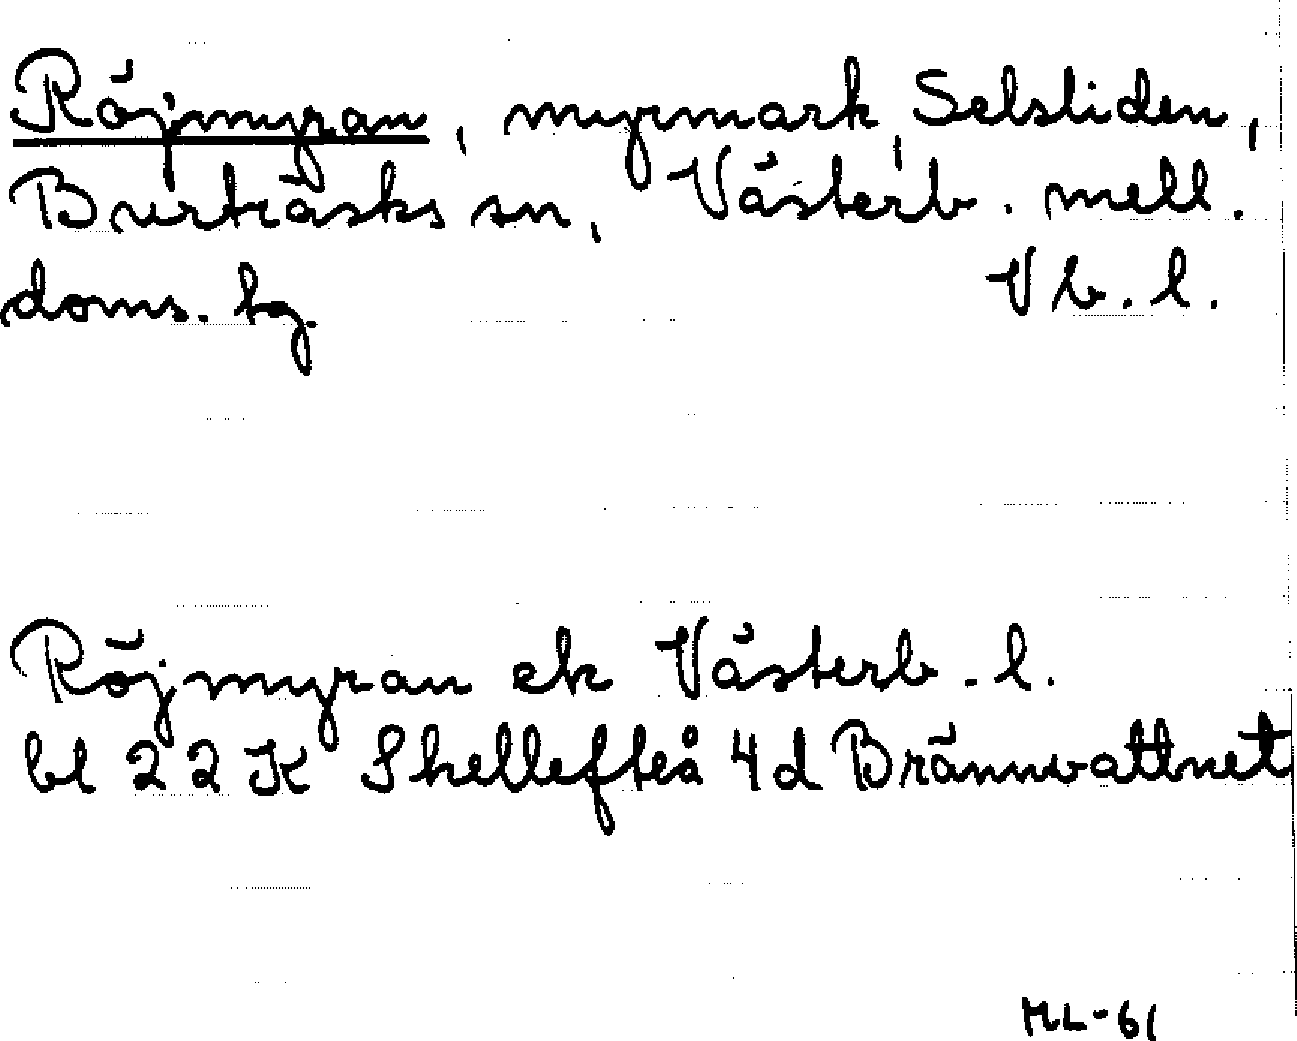 Röjmyran, myrmark, Selsliden,
Burträsks sn, Västerb. mell.
doms. hg. Vb. l.
Röjmyran ek Västerb. l.
bl 22 K Skellefteå 4d Brännvattnet
ML-61